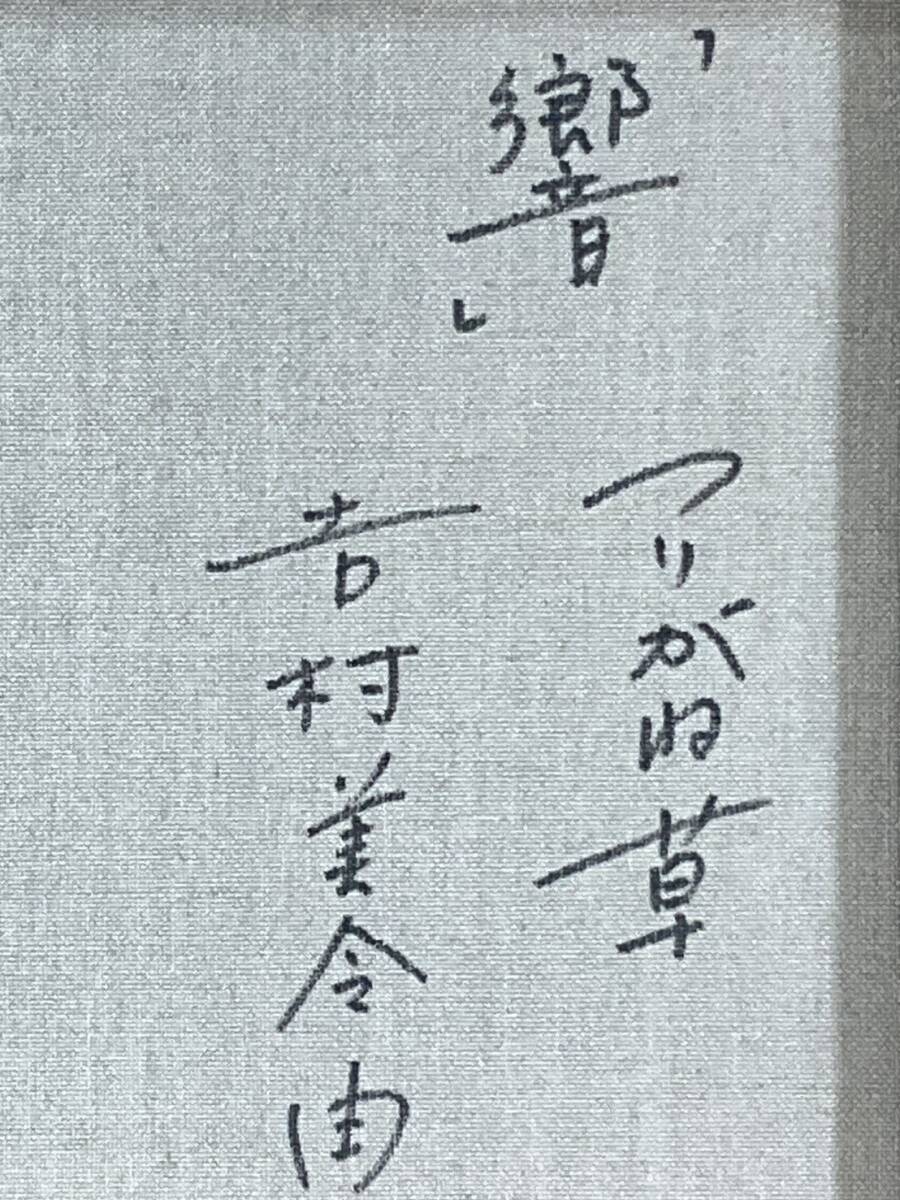 「響」
つりがね草
吉村美令由